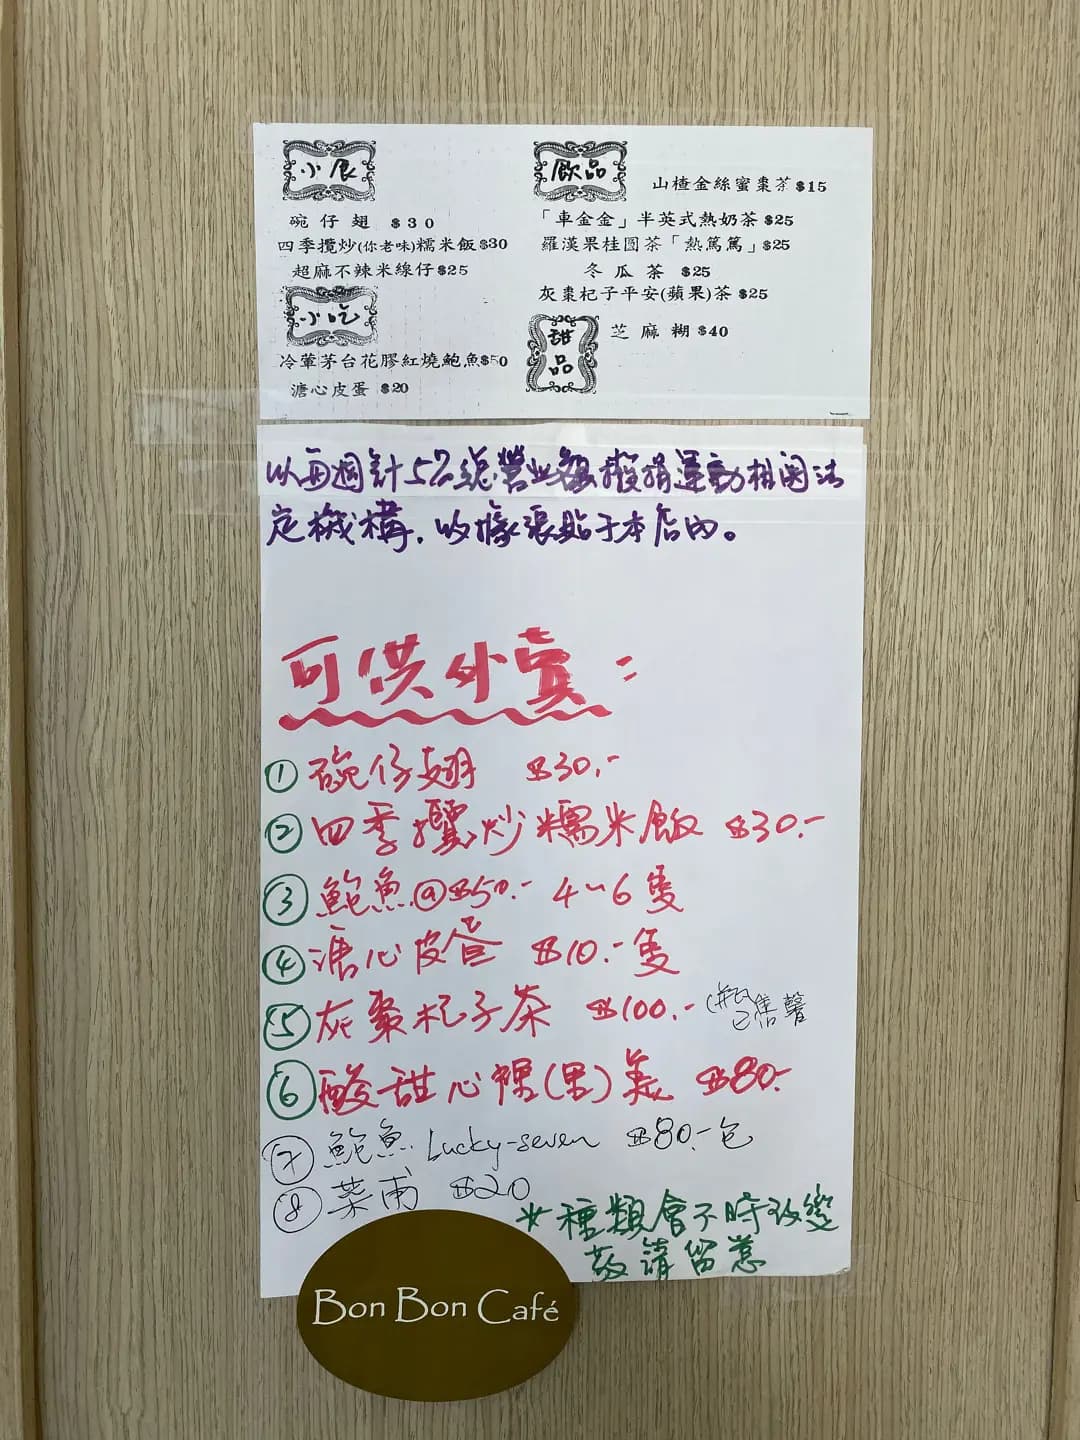 小食
碗仔翅 $30
四季攬炒(你老味)糯米飯$30
超麻不辣米線仔$25
小吃
冷葷茅台花膠紅燒鮑魚$50
溏心皮蛋 $20
飲品
山楂金絲蜜棗茶$15
「車金金」半英式熱奶茶$25
羅漢果桂圓茶「熱篤篤」$25
冬瓜茶 $25
灰棗杞子平安(蘋果)茶$25
甜品
芝麻糊$40
以每週計5%總營業額撥捐運動相關法
定機構,收據張貼于本店內。
可供外賣:
① 碗仔翅 $30.-
② 四季攬炒糯米飯 $30.-
③ 鮑魚@$50.- 4~6隻
④ 溏心皮蛋 $10.-隻
⑤ 灰棗杞子茶 $100.- (已售馨
⑥ 酸甜心裸(果)美 $80.-
⑦ 鮑魚 Lucky-seven $80.-包
⑧ 菜甫 $20
種類會不時改變
敬請留意
Bon Bon Café